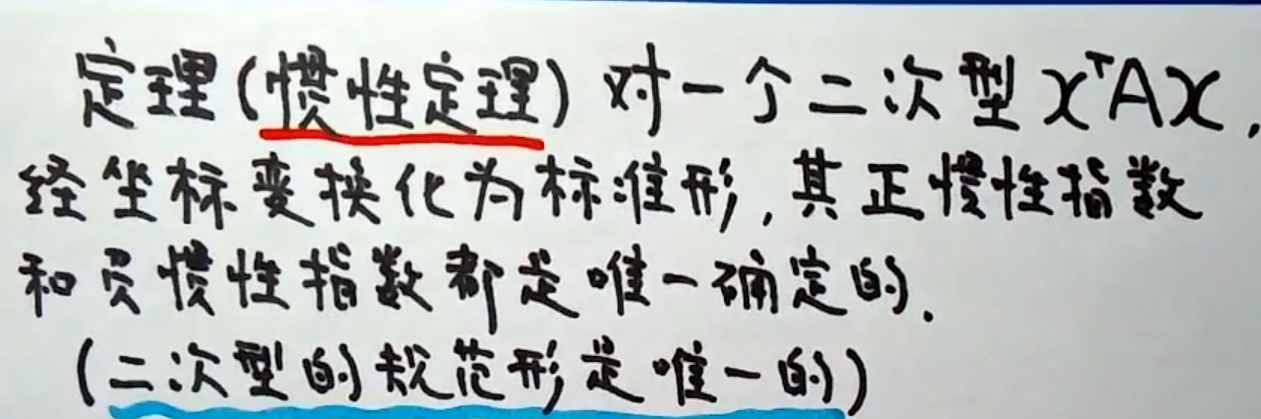 定理(惯性定理) 对一个二次型 xᵀAx,
经坐标变换化为标准形,其正惯性指数
和负惯性指数都是唯一确定的.
(二次型的规范形是唯一的)